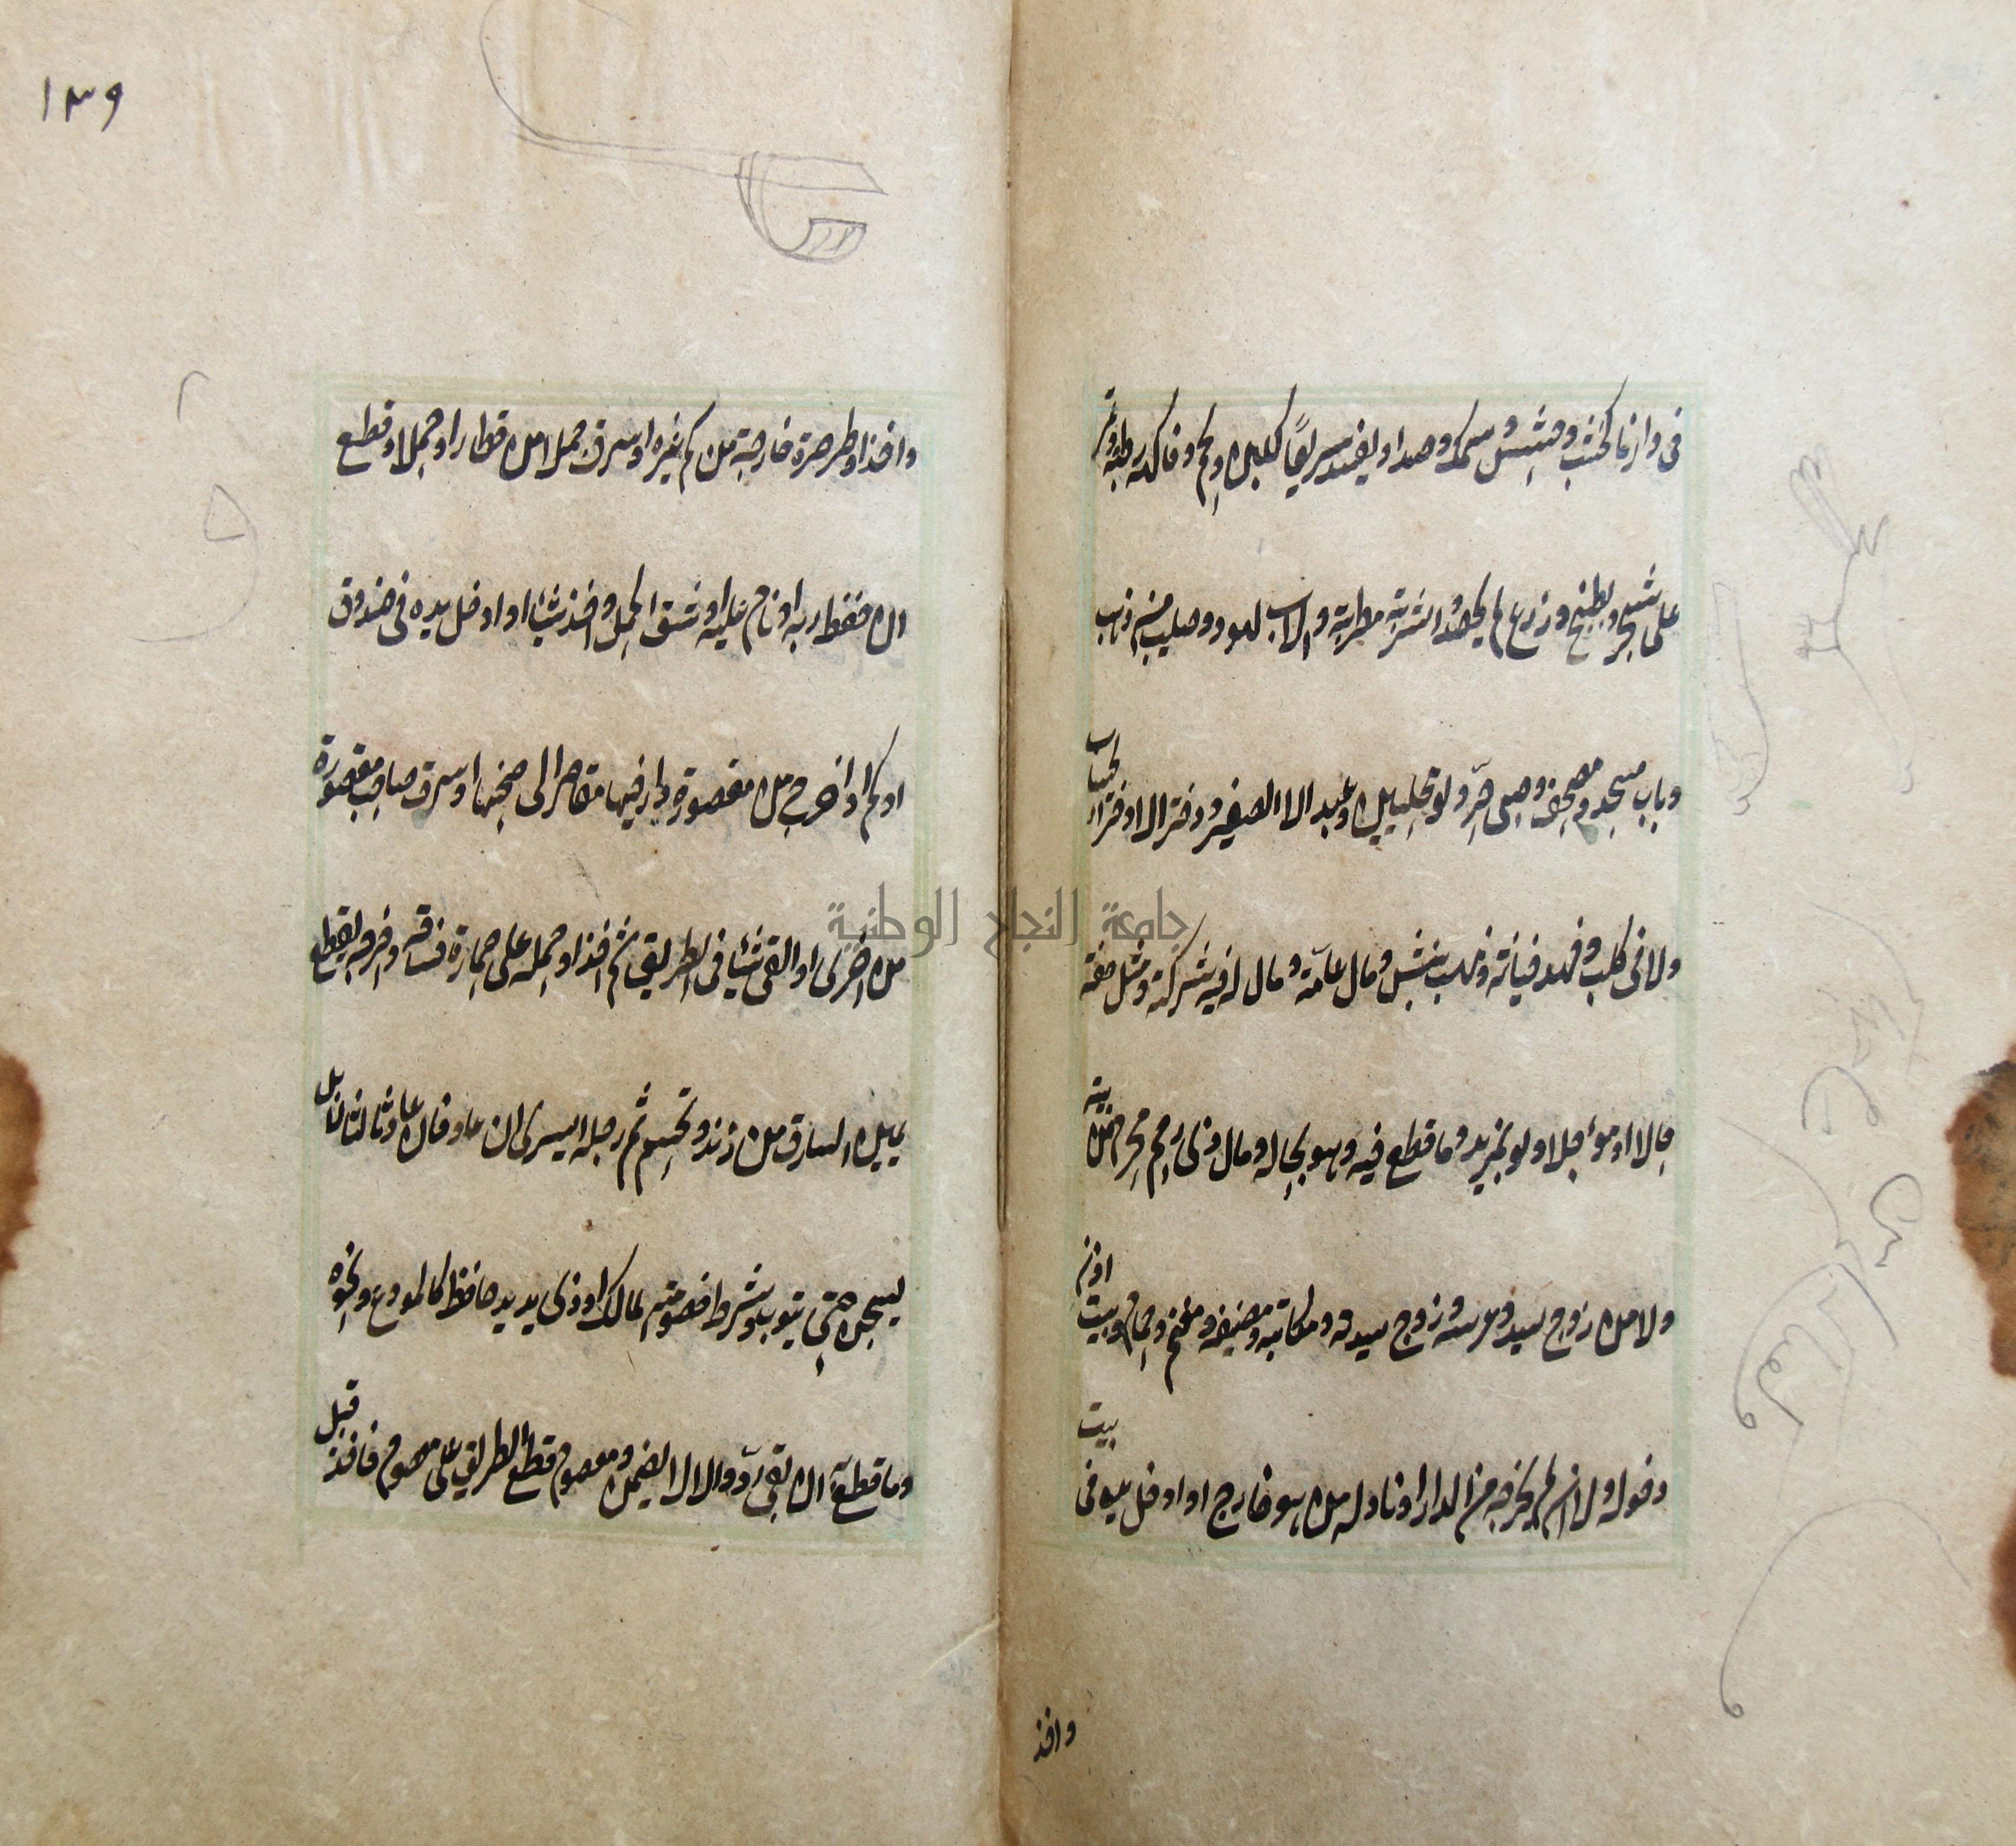 فى دارنا كخشب وحشيش وسمك وصيد او يفسد سريعا كلبن ولحم وفاكهة رطبة وثمر
على شجر وبطيخ وزرع لم يحصد واشربة مطربة وآلات لهو وصليب من ذهب
وباب مسجد ومصحف وصبى حر ولو بحليين وعبد الا الصغير ودفتر الا دفتر الحساب
ولا فى كلب وفهد وخيانة ونهب ونبش ومال عامة ومال له فيه شركة ومثل حقه
حالا او مؤجلا ولو بمزيد وما قطع فيه وهو بحاله ومال ذى رحم محرم من بيته
ولا من زوج سيد وعرسه وزوج سيدته ومكاتبه ومضيفه ومغنم وحمام وبيت اذن
دخوله ولا ان لم يخرجه من الدار او ناوله من هو خارج او ادخل يده فى بيت
واخذ
١٣٩
واخذ او طر صرة خارجة من كم غيره او سرق جملا من قطار او حملا وقطع
ان حفظ ربه او نام عليه او شق الحمل واخذ شيئا او ادخل يده فى صندوق
او كم او اخرج من مقصورة دار فيها مقاصر الى صحنها او سرق صاحب مقصورة
من اخرى او القى شيئا فى الطريق ثم اخذ او حمله على حمارة فساقه واخرجه ويقطع
يمين السارق من زنده وتحسم ثم رجله اليسرى ان عاد فان عاد ثالثا لا بل
يسجن حتى يتوب وشرط خصومة المالك او ذى يد حافظة كالمودع ونحوه
وما قطع به ان بقى رد والا لا يضمن ومعصوم قطع الطريق على معصوم فاخذ قبل
جامعة النجاح الوطنية